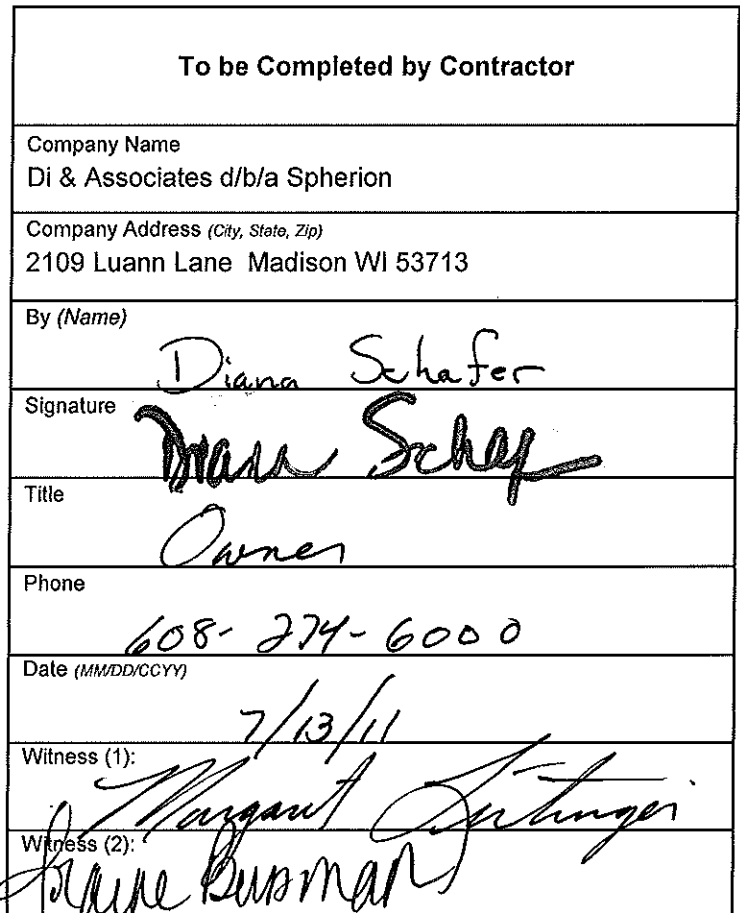 To be Completed by Contractor
Company Name
Di & Associates d/b/a Spherion
Company Address (City, State, Zip)
2109 Luann Lane Madison WI 53713
By (Name)
Diana Schafer
Signature
Diana Schaf
Title
Owner
Phone
608-274-6000
Date (MM/DD/CCYY)
7/13/11
Witness (1):
Margaret
Witness (2):